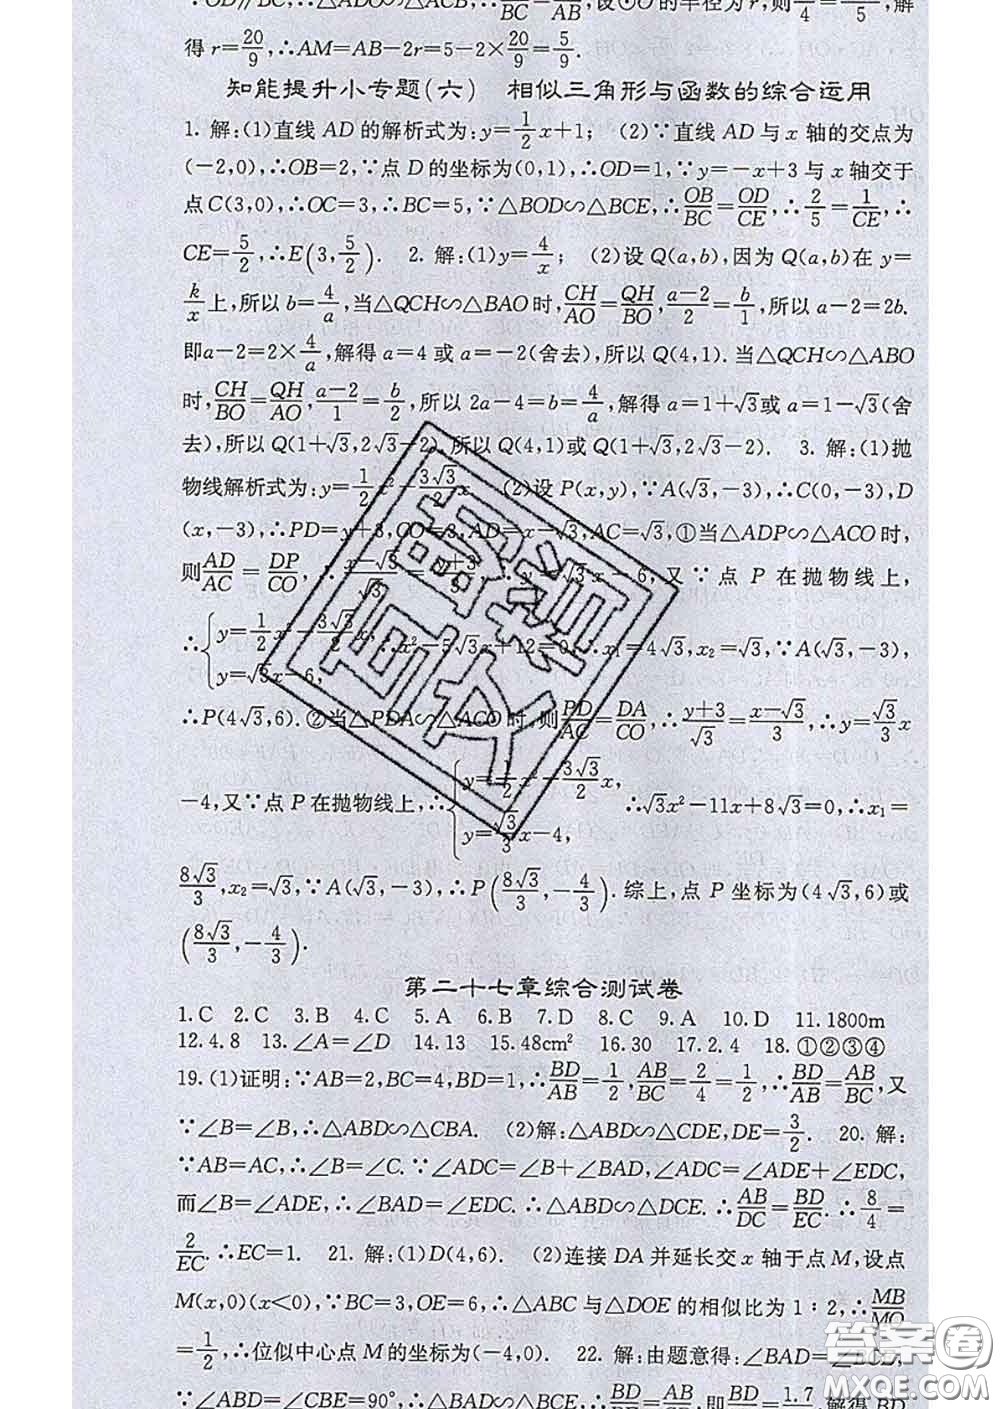 ∵OD∥BC,∴△ADO∽△ACB,∴ BC = AB,设⊙O的半径为r,则 4 = 5,解
得r=20/9,∴AM=AB-2r=5-2×20/9=5/9.
知能提升小专题(六) 相似三角形与函数的综合运用
1. 解:(1)直线AD的解析式为:y=1/2x+1; (2)∵直线AD与x轴的交点为
(-2,0),∴OB=2,∵点D的坐标为(0,1),∴OD=1,∵y=-x+3与x轴交于
点C(3,0),∴OC=3,∴BC=5,∵△BOD∽△BCE,∴OB/BC=OD/CE,∴2/5=1/CE,∴
CE=5/2,∴E(3,5/2). 2. 解:(1)y=4/x; (2)设Q(a,b),因为Q(a,b)在y=
k/x上,所以b=4/a,当△QCH∽△BAO时,CH/AO=QH/BO,a-2/2=b/1,所以a-2=2b.
即a-2=2×4/a,解得a=4或a=-2(舍去),所以Q(4,1).当△QCH∽△ABO
时,CH/BO=QH/AO,a-2/1=b/2,所以2a-4=b=4/a,解得a=1+√3或a=1-√3(舍
去),所以Q(1+√3,2√3-2),所以Q(4,1)或Q(1+√3,2√3-2). 3. 解:(1)抛
物线解析式为:y=1/2x²-3√3/2x (2)设P(x,y),∵A(√3,-3),∴C(0,-3),D
(x,-3),∴PD=y+3,CO=3,AD=x-√3,AC=√3,①当△ADP∽△ACO时,
则AD/AC=DP/CO,∴x-√3/√3=y+3/3,∴y=√3x-6,又∵点P在抛物线上,
∴{y=1/2x²-3√3/2x,∴x²-5√3x+12=0,∴x₁=4√3,x₂=√3,∵A(√3,-3),
y=√3x-6,
∴P(4√3,6).②当△PDA∽△ACO时,则PD/AC=DA/CO,∴y+3/√3=x-√3/3,∴y=√3/3x
-4,又∵点P在抛物线上,∴{y=1/2x²-3√3/2x, ∴√3x²-11x+8√3=0,∴x₁=
y=√3/3x-4,
8√3/3,x₂=√3,∵A(√3,-3),∴P(8√3/3,-4/3).综上,点P坐标为(4√3,6)或
(8√3/3,-4/3).
第二十七章综合测试卷
1.C 2.C 3.B 4.C 5.A 6.B 7.D 8.C 9.A 10.D 11.1800m
12.4.8 13.∠A=∠D 14.13 15.48cm² 16.30 17.2.4 18.①②③④
19.(1)证明:∵AB=2,BC=4,BD=1,∴BD/AB=1/2,AB/BC=2/4=1/2,∴BD/AB=AB/BC,又
∵∠B=∠B,∴△ABD∽△CBA. (2)解:△ABD∽△CDE,DE=3/2. 20. 解:
∵AB=AC,∴∠B=∠C.∵∠ADC=∠B+∠BAD,∠ADC=∠ADE+∠EDC,
而∠B=∠ADE,∴∠BAD=∠EDC.∴△ABD∽△DCE.∴AB/DC=BD/EC.∴8/4=
2/EC.∴EC=1. 21. 解:(1)D(4,6). (2)连接DA并延长交x轴于点M,设点
M(x,0)(x<0),∵BC=3,OE=6,∴△ABC与△DOE的相似比为1:2,∴MB/MO
=1/2,∴位似中心点M的坐标为(-4,0). 22. 解:由题意得:∠BAD=∠BCD,
∵∠ABD=∠CBE=90°,∴△BAD∽△BCE,∴BD = AB,即BD = 1.7,解得BD
答案圈
MXQE.COM